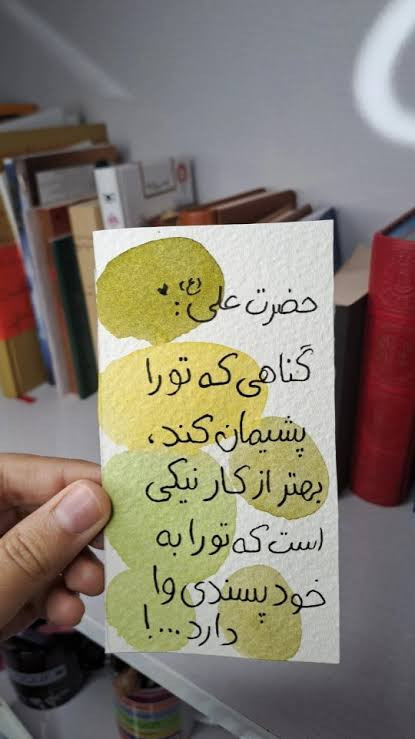 حضرت علی (ع):
گناهی که تو را
پشیمان کند،
بهتر از کار نیکی
است که تو را به
خود پسندی وا
دارد...!